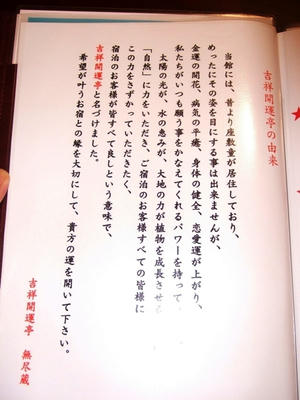 吉祥開運亭の由来
当館には、昔より座敷童が居住しており、
めったにその姿を目にする事は出来ませんが、
金運の開花、病気の平癒、身体の健全、恋愛運が上がり、
私たちがいつも願う事をかなえてくれるパワーを持って
太陽の光が、水の恵みが、大地の力が植物を成長させる
「自然」に力をいただき、ご宿泊のお客様すべての皆様に
この力をさずかっていただきたく、
宿泊のお客様が皆すべて良しという意味で、
吉祥開運亭と名づけました。
希望が叶うお宿との縁を大切にして、貴方の運を開いて下さい。
吉祥開運亭 無尽蔵